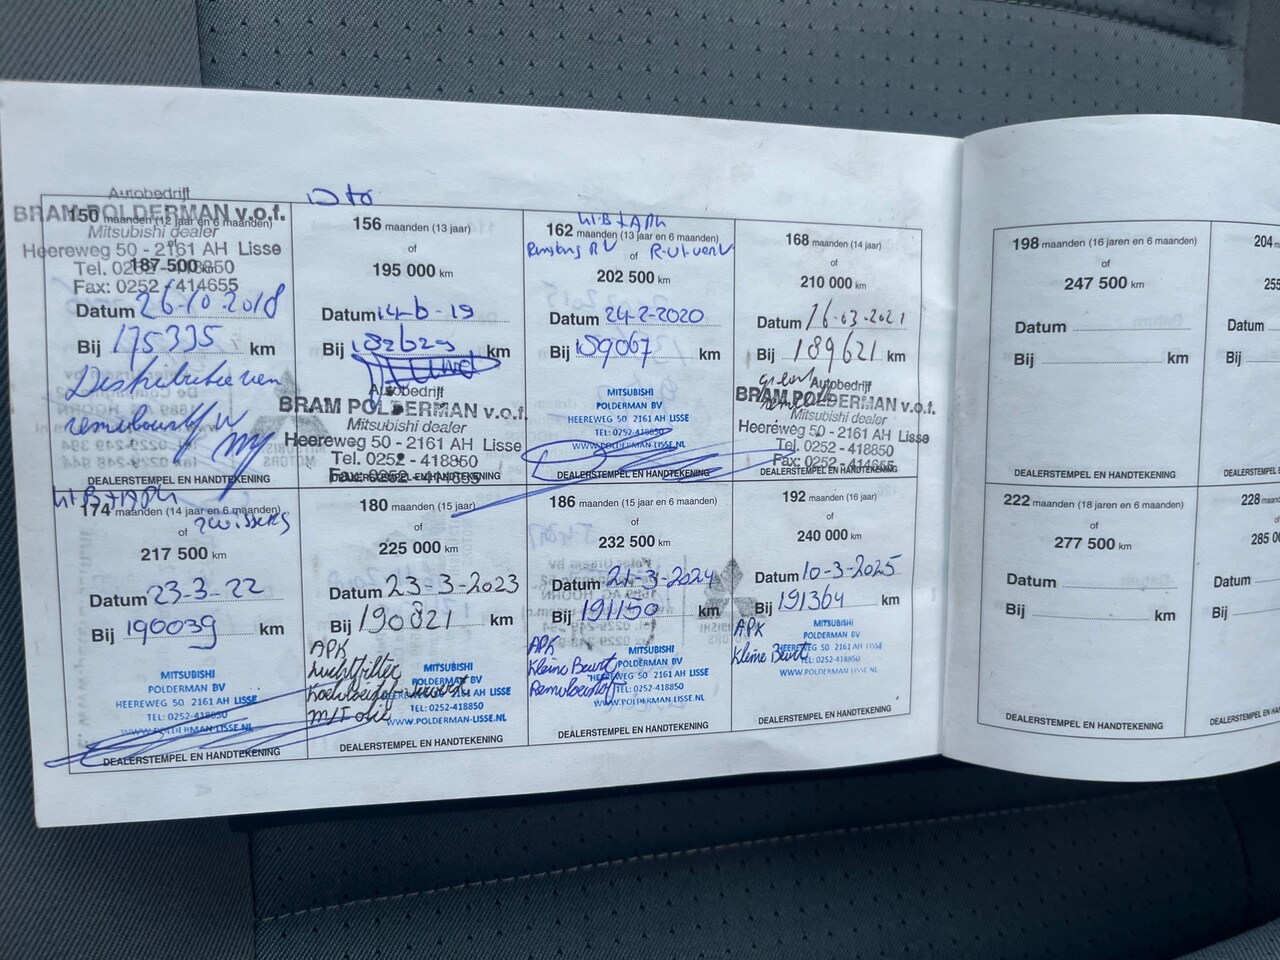 Autobedrijf
BRAM POLDERMAN v.o.f.
150 maanden (12 jaar en 6 maanden)
Mitsubishi dealer
of
Heereweg 50 - 2161 AH Lisse
187 500 km
Tel. 0252 - 418850
Fax: 0252 - 414655
Datum 26-10-2018
Bij 175335 km
Distributieriem
DEALERSTEMPEL EN HANDTEKENING
156 maanden (13 jaar)
of
195 000 km
Datum 14-6-19
Bij 182629 km
Autobedrijf
BRAM POLDERMAN v.o.f.
Mitsubishi dealer
Heereweg 50 - 2161 AH Lisse
Tel. 0252 - 418850
Fax: 0252 - 414655
DEALERSTEMPEL EN HANDTEKENING
162 maanden (13 jaar en 6 maanden)
of
202 500 km
Datum 24-2-2020
Bij 189067 km
MITSUBISHI
POLDERMAN BV
HEEREWEG 50 2161 AH LISSE
TEL: 0252-418850
WWW.POLDERMAN-LISSE.NL
DEALERSTEMPEL EN HANDTEKENING
168 maanden (14 jaar)
of
210 000 km
Datum 16-03-2021
Bij 189621 km
Autobedrijf
BRAM POLDERMAN v.o.f.
Mitsubishi dealer
Heereweg 50 - 2161 AH Lisse
Tel. 0252 - 418850
Fax: 0252 - 414655
DEALERSTEMPEL EN HANDTEKENING
174 maanden (14 jaar en 6 maanden)
of
217 500 km
Datum 23-3-22
Bij 190039 km
MITSUBISHI
POLDERMAN BV
HEEREWEG 50 2161 AH LISSE
TEL: 0252-418850
WWW.POLDERMAN-LISSE.NL
DEALERSTEMPEL EN HANDTEKENING
180 maanden (15 jaar)
of
225 000 km
Datum 23-3-2023
Bij 190821 km
APK
Luchtfilter
M/T olie
MITSUBISHI
POLDERMAN BV
HEEREWEG 50 2161 AH LISSE
TEL: 0252-418850
WWW.POLDERMAN-LISSE.NL
DEALERSTEMPEL EN HANDTEKENING
186 maanden (15 jaar en 6 maanden)
of
232 500 km
Datum 21-3-2024
Bij 191150 km
APK
Kleine Beurt
Remvloeistof
MITSUBISHI
POLDERMAN BV
HEEREWEG 50 2161 AH LISSE
TEL: 0252-418850
WWW.POLDERMAN-LISSE.NL
DEALERSTEMPEL EN HANDTEKENING
192 maanden (16 jaar)
of
240 000 km
Datum 10-3-2025
Bij 191364 km
APK
Kleine Beurt
MITSUBISHI
POLDERMAN BV
HEEREWEG 50 2161 AH LISSE
TEL: 0252-418850
WWW.POLDERMAN-LISSE.NL
DEALERSTEMPEL EN HANDTEKENING
198 maanden (16 jaren en 6 maanden)
of
247 500 km
Datum
Bij km
DEALERSTEMPEL EN HANDTEKENING
204
Datum
Bij
222 maanden (18 jaren en 6 maanden)
of
277 500 km
Datum
Bij km
DEALERSTEMPEL EN HANDTEKENING
228
Datum
Bij